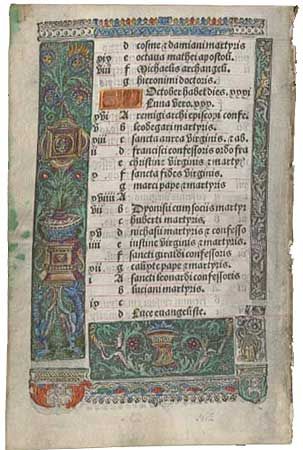 d cosme & damiani martyris
xiy e octava mathei apostoli.
iii f Michaelis archangeli.
g hieronimi doctoris.
October habet dies. xxxi
Luna vero. xxx.
xvi A remigii archiepiscopi confes
v b leodegarii martyris.
xiii c sancta aurea virginis. & ab.
ii d francisci confessoris ordo fra
e christine virginis & martyr
x f sancta fides virginis.
g marci pape & martyris
xviii A
vii b Dyonisii cum sociis martyr
c huberti martyris.
xv d nichasii martyris & confesso
iiii e iustine virginis & martyris.
f sancti giraldi confessoris
xii g calixte pape & martyris.
i A sancti leonardi confessoris
b luciani martyris.
ix c
d Luce evangeliste.